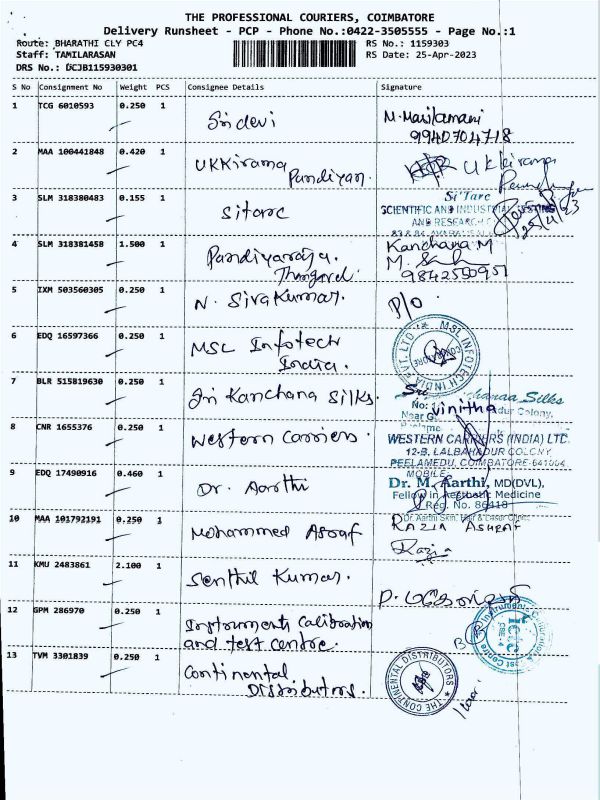 THE PROFESSIONAL COURIERS, COIMBATORE
Delivery Runsheet - PCP - Phone No.:0422-3505555 - Page No.:1
Route: BHARATHI CLY PC4 RS No.: 1159303
Staff: TAMILARASAN RS Date: 25-Apr-2023
DRS No.: DCJB115930301
S No Consignment No Weight PCS Consignee Details Signature
1 TCG 6010593 0.250 1 Sridevi M. Manikamani
9940704718
2 MAA 100441848 0.420 1 UKKirama Pandiyan. Ukkirama
3 SLM 318380483 0.155 1 Sitarc Si'Tarc
SCIENTIFIC AND INDUSTRIAL TESTING
AND RESEARCH
25/4/23
4 SLM 318381458 1.500 1 Pandiyaraja. Kanchana M
9842550951
5 IXM 503560305 0.250 1 N. SivaKumar. P/O
6 EDQ 16597366 0.250 1 MSL Infotech India. MSL INFOTECH INDIA PVT. LTD
7 BLR 515819630 0.250 1 Sri Kanchana Silks. Sri Silks
No: Vinitha Colony,
8 CNR 1655376 0.250 1 Western Carriers. WESTERN CARRIERS (INDIA) LTD.
12-B, LALBAHADUR COLONY,
PEELAMEDU, COIMBATORE-641004
MOBILE
9 EDQ 17490916 0.460 1 Dr. Aarthi Dr. M. Aarthi, MD(DVL),
Fellow in Aesthetic Medicine
Reg. No. 86418
Dr. Aarthi Skin, Hair & Laser Clinic
10 MAA 101792191 0.250 1 Mohammed Asraf RAZIA ASHRAF
Razia
11 KMU 2483861 2.100 1 Senthil Kumar.
12 GPM 286970 0.250 1 Instruments Calibration
and test centre.
13 TVM 3301839 0.250 1 Continental Distributors. THE CONTINENTAL DISTRIBUTORS